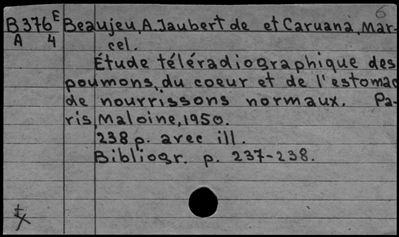 6
B376E Beaujeu, A. Jaubert de et Caruana, Mar-
A 4 cel.
Étude téléradiographique des
poumons, du coeur et de l'estomac
de nourrissons normaux. Pa-
ris, Maloine, 1950.
238 p. avec ill.
Bibliogr. p. 237-238.